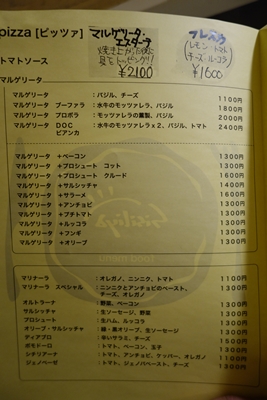 pizza [ピッツァ]
マルゲリータ・エスターテ
焼き上がった後に
具をトッピング!!
¥2100
フレスカ
(レモン・トマト
チーズ・ルーコラ)
¥1600
トマトソース
マルゲリータ
マルゲリータ ：バジル、チーズ 1100円
マルゲリータ ブーファラ ：水牛のモッツァレラ、バジル 1800円
マルゲリータ プロボラ ：モッツァレラの燻製、バジル 2000円
マルゲリータ DOC ：水牛のモッツァレラx2、バジル、トマト 2400円
ビアンカ
マルゲリータ +ベーコン 1300円
マルゲリータ +プロシュート コット 1300円
マルゲリータ +プロシュート クルード 1600円
マルゲリータ +サルシッチャ 1400円
マルゲリータ +サラーメ 1600円
マルゲリータ +アンチョビ 1300円
マルゲリータ +プチトマト 1300円
マルゲリータ +ルッコラ 1300円
マルゲリータ +フンギ 1300円
マルゲリータ +オリーブ 1300円
マリナーラ ：オレガノ、ニンニク、トマト 1100円
マリナーラ スペシャル ：ニンニクとアンチョビのペースト、 1300円
チーズ、オレガノ
オルトラーナ ：野菜、ベーコン 1300円
サルシッチャ ：生ソーセージ、野菜 1300円
プロシュート ：生ハム、ルッコラ 1300円
オリーブ・サルシッチャ ：緑・黒オリーブ、生ソーセージ 1300円
ディアブロ ：辛いサラミ、チーズ 1300円
ポモドーロ ：トマト、ベーコン、玉子 1300円
シチリアーナ ：トマト、アンチョビ、ケッパー、オレガノ 1100円
ジェノベーゼ ：トマト、ジェノバペースト、チーズ 1300円